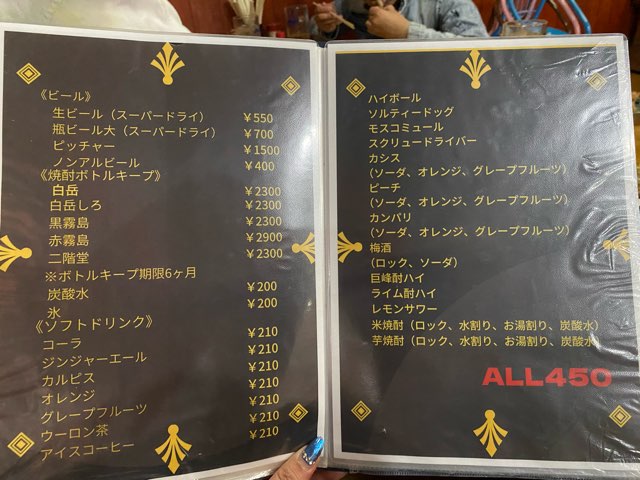 《ビール》
生ビール（スーパードライ） ￥550
瓶ビール大（スーパードライ） ￥700
ピッチャー ￥1500
ノンアルビール ￥400
《焼酎ボトルキープ》
白岳 ￥2300
白岳しろ ￥2300
黒霧島 ￥2300
赤霧島 ￥2900
二階堂 ￥2300
※ボトルキープ期限6ヶ月
炭酸水 ￥200
氷 ￥200
《ソフトドリンク》
コーラ ￥210
ジンジャーエール ￥210
カルピス ￥210
オレンジ ￥210
グレープフルーツ ￥210
ウーロン茶 ￥210
アイスコーヒー ￥210
ハイボール
ソルティードッグ
モスコミュール
スクリュードライバー
カシス
（ソーダ、オレンジ、グレープフルーツ）
ピーチ
（ソーダ、オレンジ、グレープフルーツ）
カンパリ
（ソーダ、オレンジ、グレープフルーツ）
梅酒
（ロック、ソーダ）
巨峰酎ハイ
ライム酎ハイ
レモンサワー
米焼酎（ロック、水割り、お湯割り、炭酸水）
芋焼酎（ロック、水割り、お湯割り、炭酸水）
ALL450